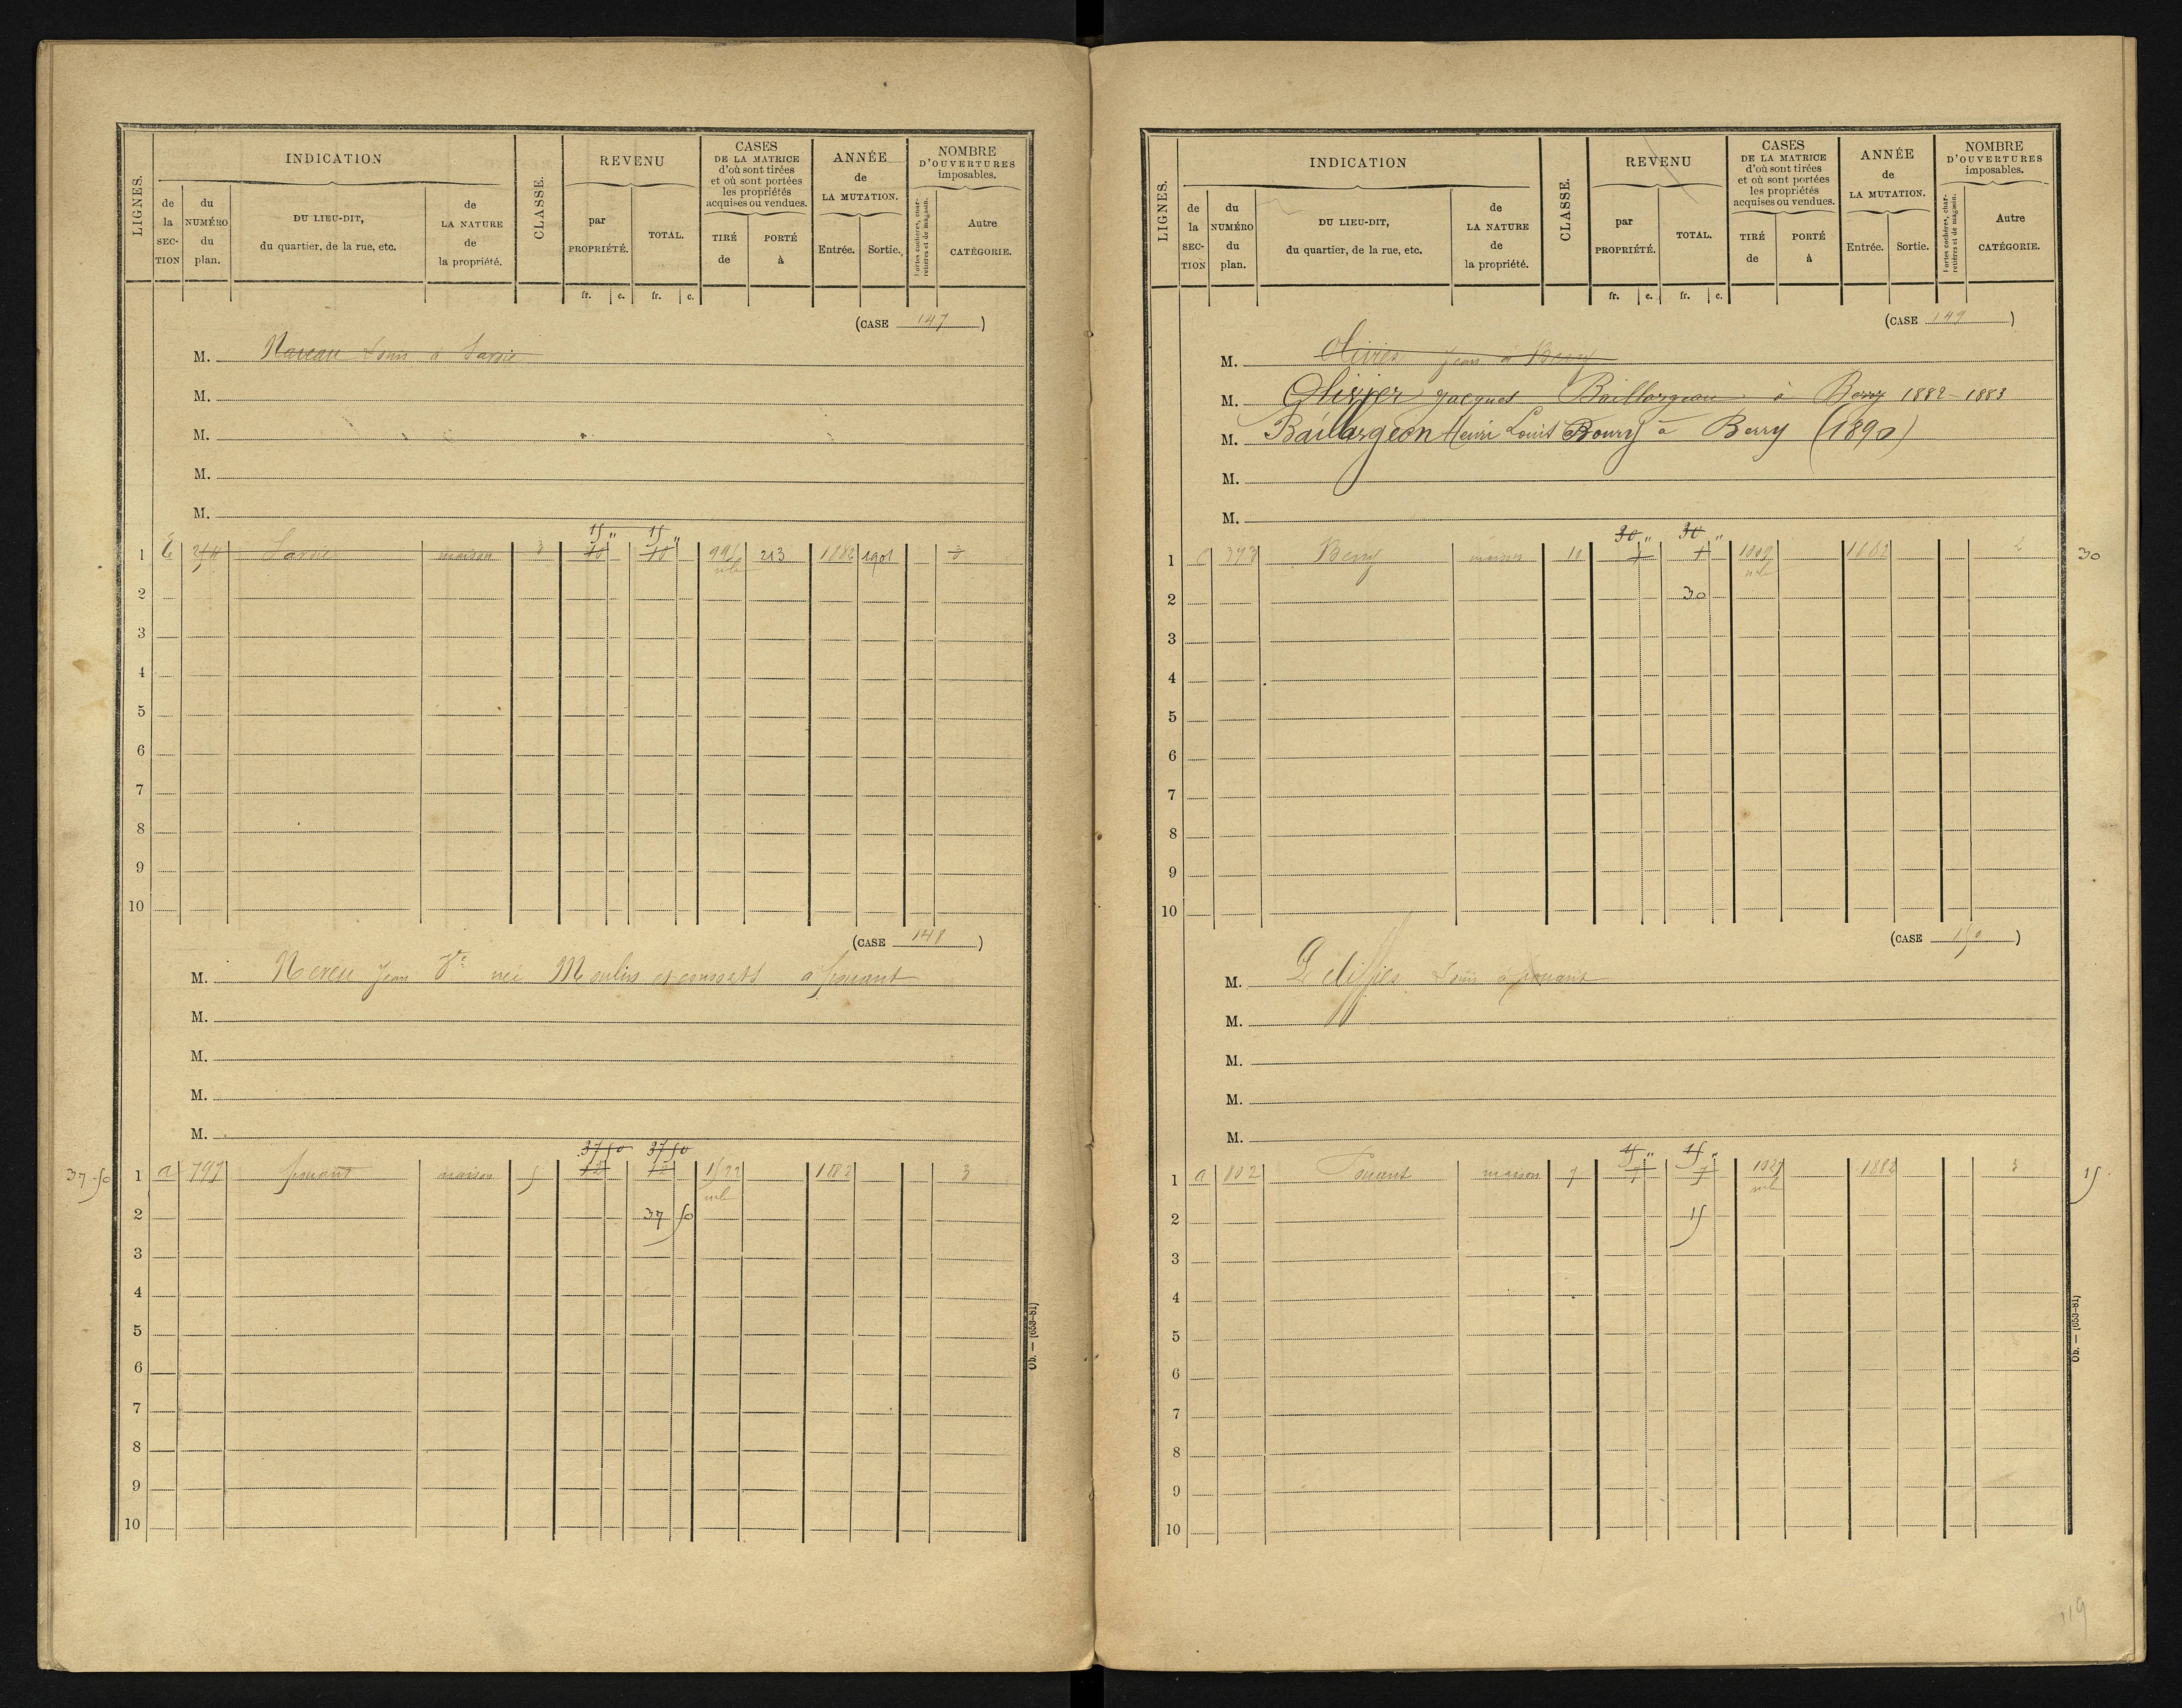 LIGNES.
INDICATION
de la SEC-TION
du NUMÉRO du plan.
DU LIEU-DIT, du quartier, de la rue, etc.
de LA NATURE de la propriété.
CLASSE.
REVENU
par PROPRIÉTÉ.
TOTAL.
fr. c. fr. c.
CASES DE LA MATRICE d'où sont tirées et où sont portées les propriétés acquises ou vendues.
TIRÉ de
PORTÉ à
ANNÉE de LA MUTATION.
Entrée. Sortie.
NOMBRE D'OUVERTURES imposables.
Portes cochères, charretières et de magasin.
Autre CATÉGORIE.
(CASE 147)
M. Naveau Louis à
M.
M.
M.
M.
15 " 15 "
1 maison 3 10 10 213 1882 1901 3
2
3
4
5
6
7
8
9
10
(CASE 148)
M. Nereu Jean Ve née Moulin et consorts à pouant
M.
M.
M.
M.
37 50 37 50
37 50 1 a 797 pouant maison 5 12 12 1882 3
2 37 50
3
4
5
6
7
8
9
10
Ob. — (653-81)
LIGNES.
INDICATION
de la SEC-TION
du NUMÉRO du plan.
DU LIEU-DIT, du quartier, de la rue, etc.
de LA NATURE de la propriété.
CLASSE.
REVENU
par PROPRIÉTÉ.
TOTAL.
fr. c. fr. c.
CASES DE LA MATRICE d'où sont tirées et où sont portées les propriétés acquises ou vendues.
TIRÉ de
PORTÉ à
ANNÉE de LA MUTATION.
Entrée. Sortie.
NOMBRE D'OUVERTURES imposables.
Portes cochères, charretières et de magasin.
Autre CATÉGORIE.
(CASE 149)
M. Olivier Jean à Berry
M. Olivier Jacques Baillargeau à Berry 1882-1883
M. Baillargeon Henri Louis Boury à Berry (1890)
M.
M.
30 " 30 "
1 393 Berry maison 10 1009 1882 2 30
2 30
3
4
5
6
7
8
9
10
(CASE 150)
M. Louis à pouant
M.
M.
M.
M.
15 " 15 "
1 a 802 Pouant maison 7 7 7 1882 3 15
2 15
3
4
5
6
7
8
9
10
Ob. — (653-81)
119